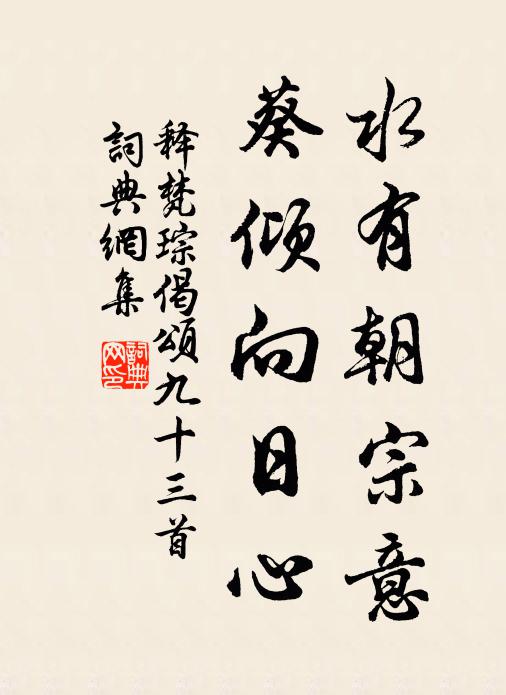 水有朝宗意
葵傾向日心
释梵琮偈頌九十三首
詞典網集
詞典网印